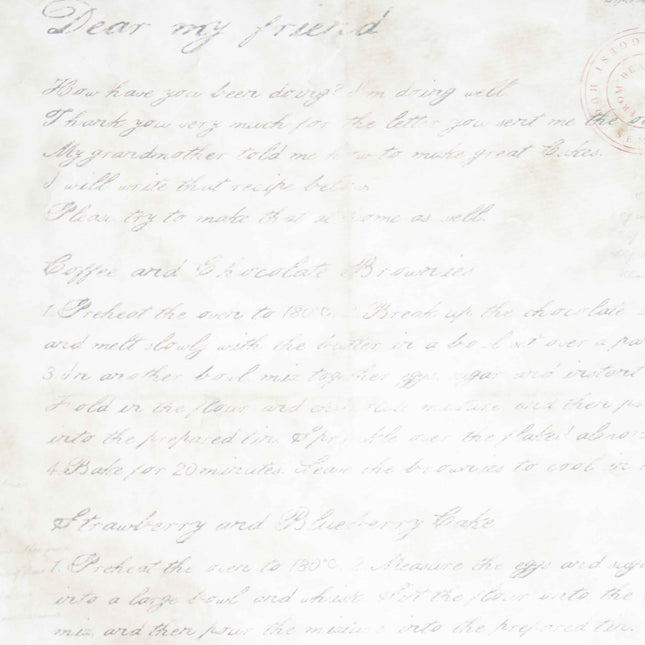 Dear my friend
How have you been doing? I'm doing well
Thank you very much for the letter you sent me the
My grandmother told me how to make great Cakes.
I will write that recipe below
Please try to make that at home as well.
Coffee and Chocolate Brownies
1. Preheat the oven to 180°C. 2. Break up the chocolate
and melt slowly with the butter in a bowl set over a
3. In another bowl mix together eggs, sugar and instant
Fold in the flour and chocolate mixture and then
into the prepared tin. Sprinkle over the flaked
4. Bake for 20 minutes. Leave the brownies to cool in
Strawberry and Blueberry Cake
1. Preheat the oven to 180°C. 2. Measure the eggs and
into a large bowl and whisk. Sift the flour onto the
mix and then pour the mixture into the prepared tin.